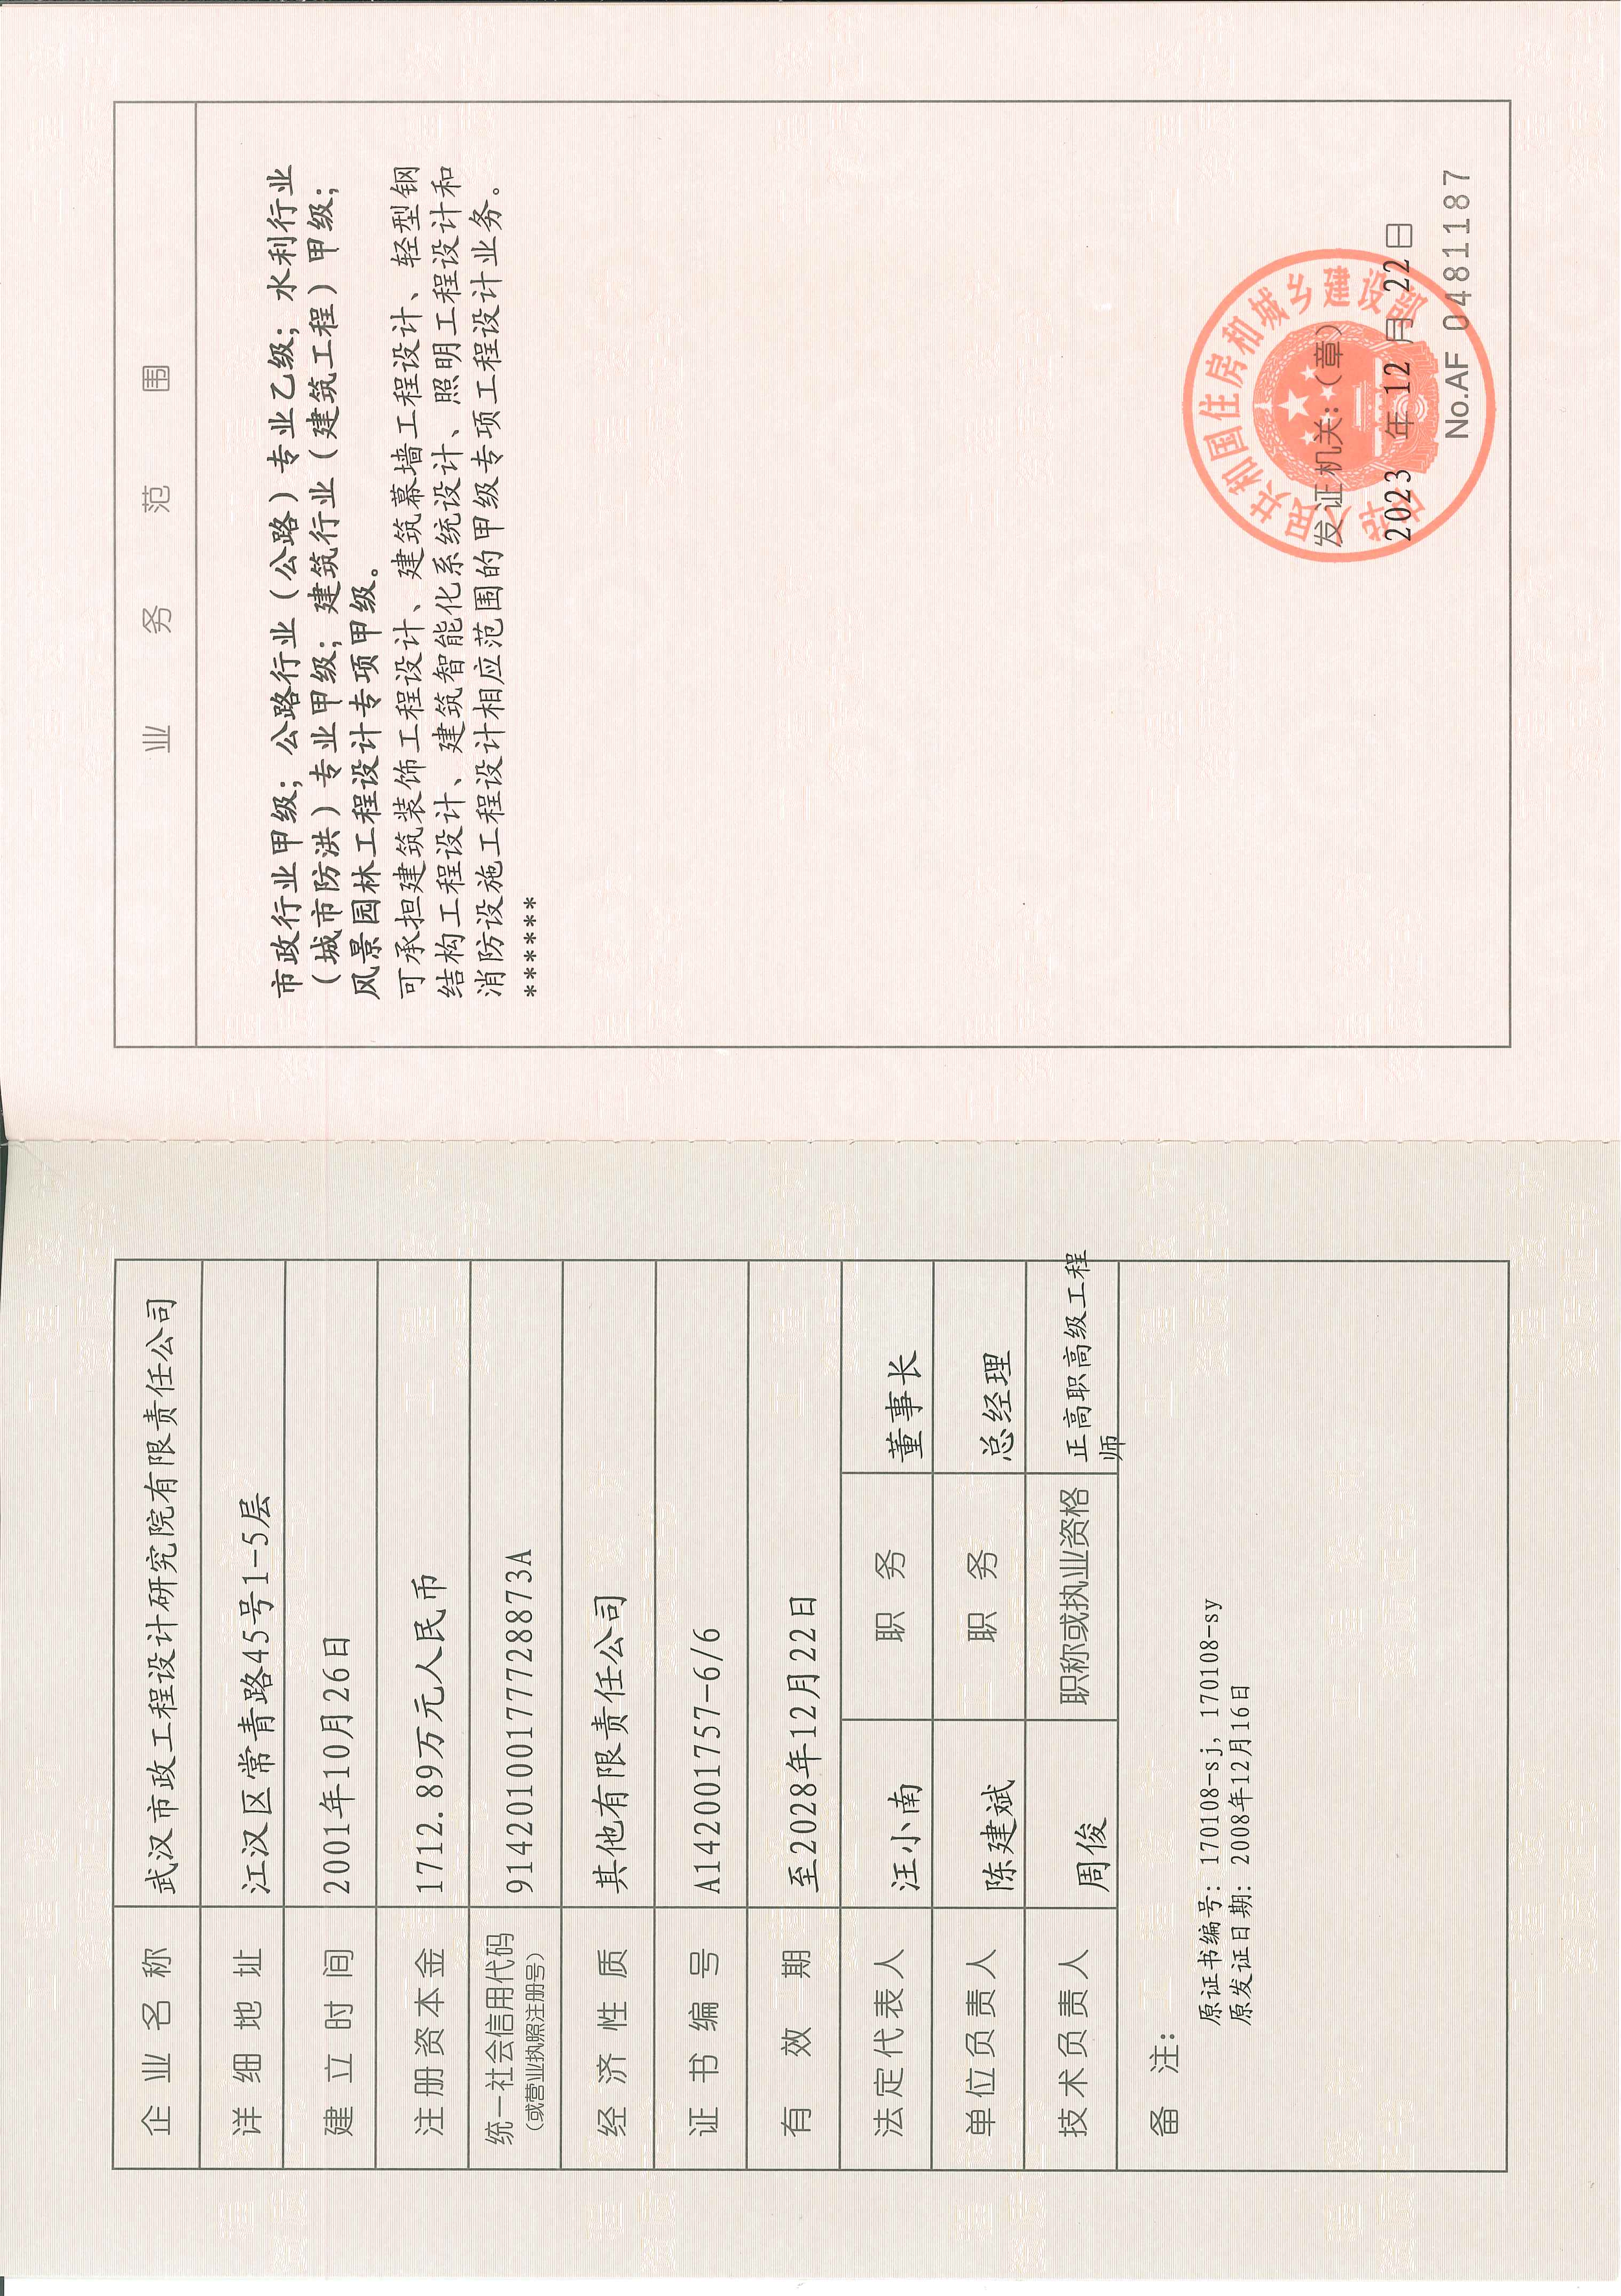 企业名称 武汉市政工程设计研究院有限责任公司
详细地址 江汉区常青路45号1-5层
建立时间 2001年10月26日
注册资本金 1712.89万元人民币
统一社会信用代码 91420100177728873A
（或营业执照注册号）
经济性质 其他有限责任公司
证书编号 A142001757-6/6
有效期 至2028年12月22日
法定代表人 汪小南 职务 董事长
单位负责人 陈建斌 职务 总经理
技术负责人 周俊 职称或执业资格 正高职高级工程
师
备注：
原证书编号：170108-sj，170108-sy
原发证日期：2008年12月16日
业务范围
市政行业甲级；公路行业（公路）专业乙级；水利行业
（城市防洪）专业甲级；建筑行业（建筑工程）甲级；
风景园林工程设计专项甲级。
可承担建筑装饰工程设计、建筑幕墙工程设计、轻型钢
结构工程设计、建筑智能化系统设计、照明工程设计和
消防设施工程设计相应范围的甲级专项工程设计业务。
*******
中华人民共和国住房和城乡建设部
发证机关：（章）
2023年12月22日
No.AF 0481187